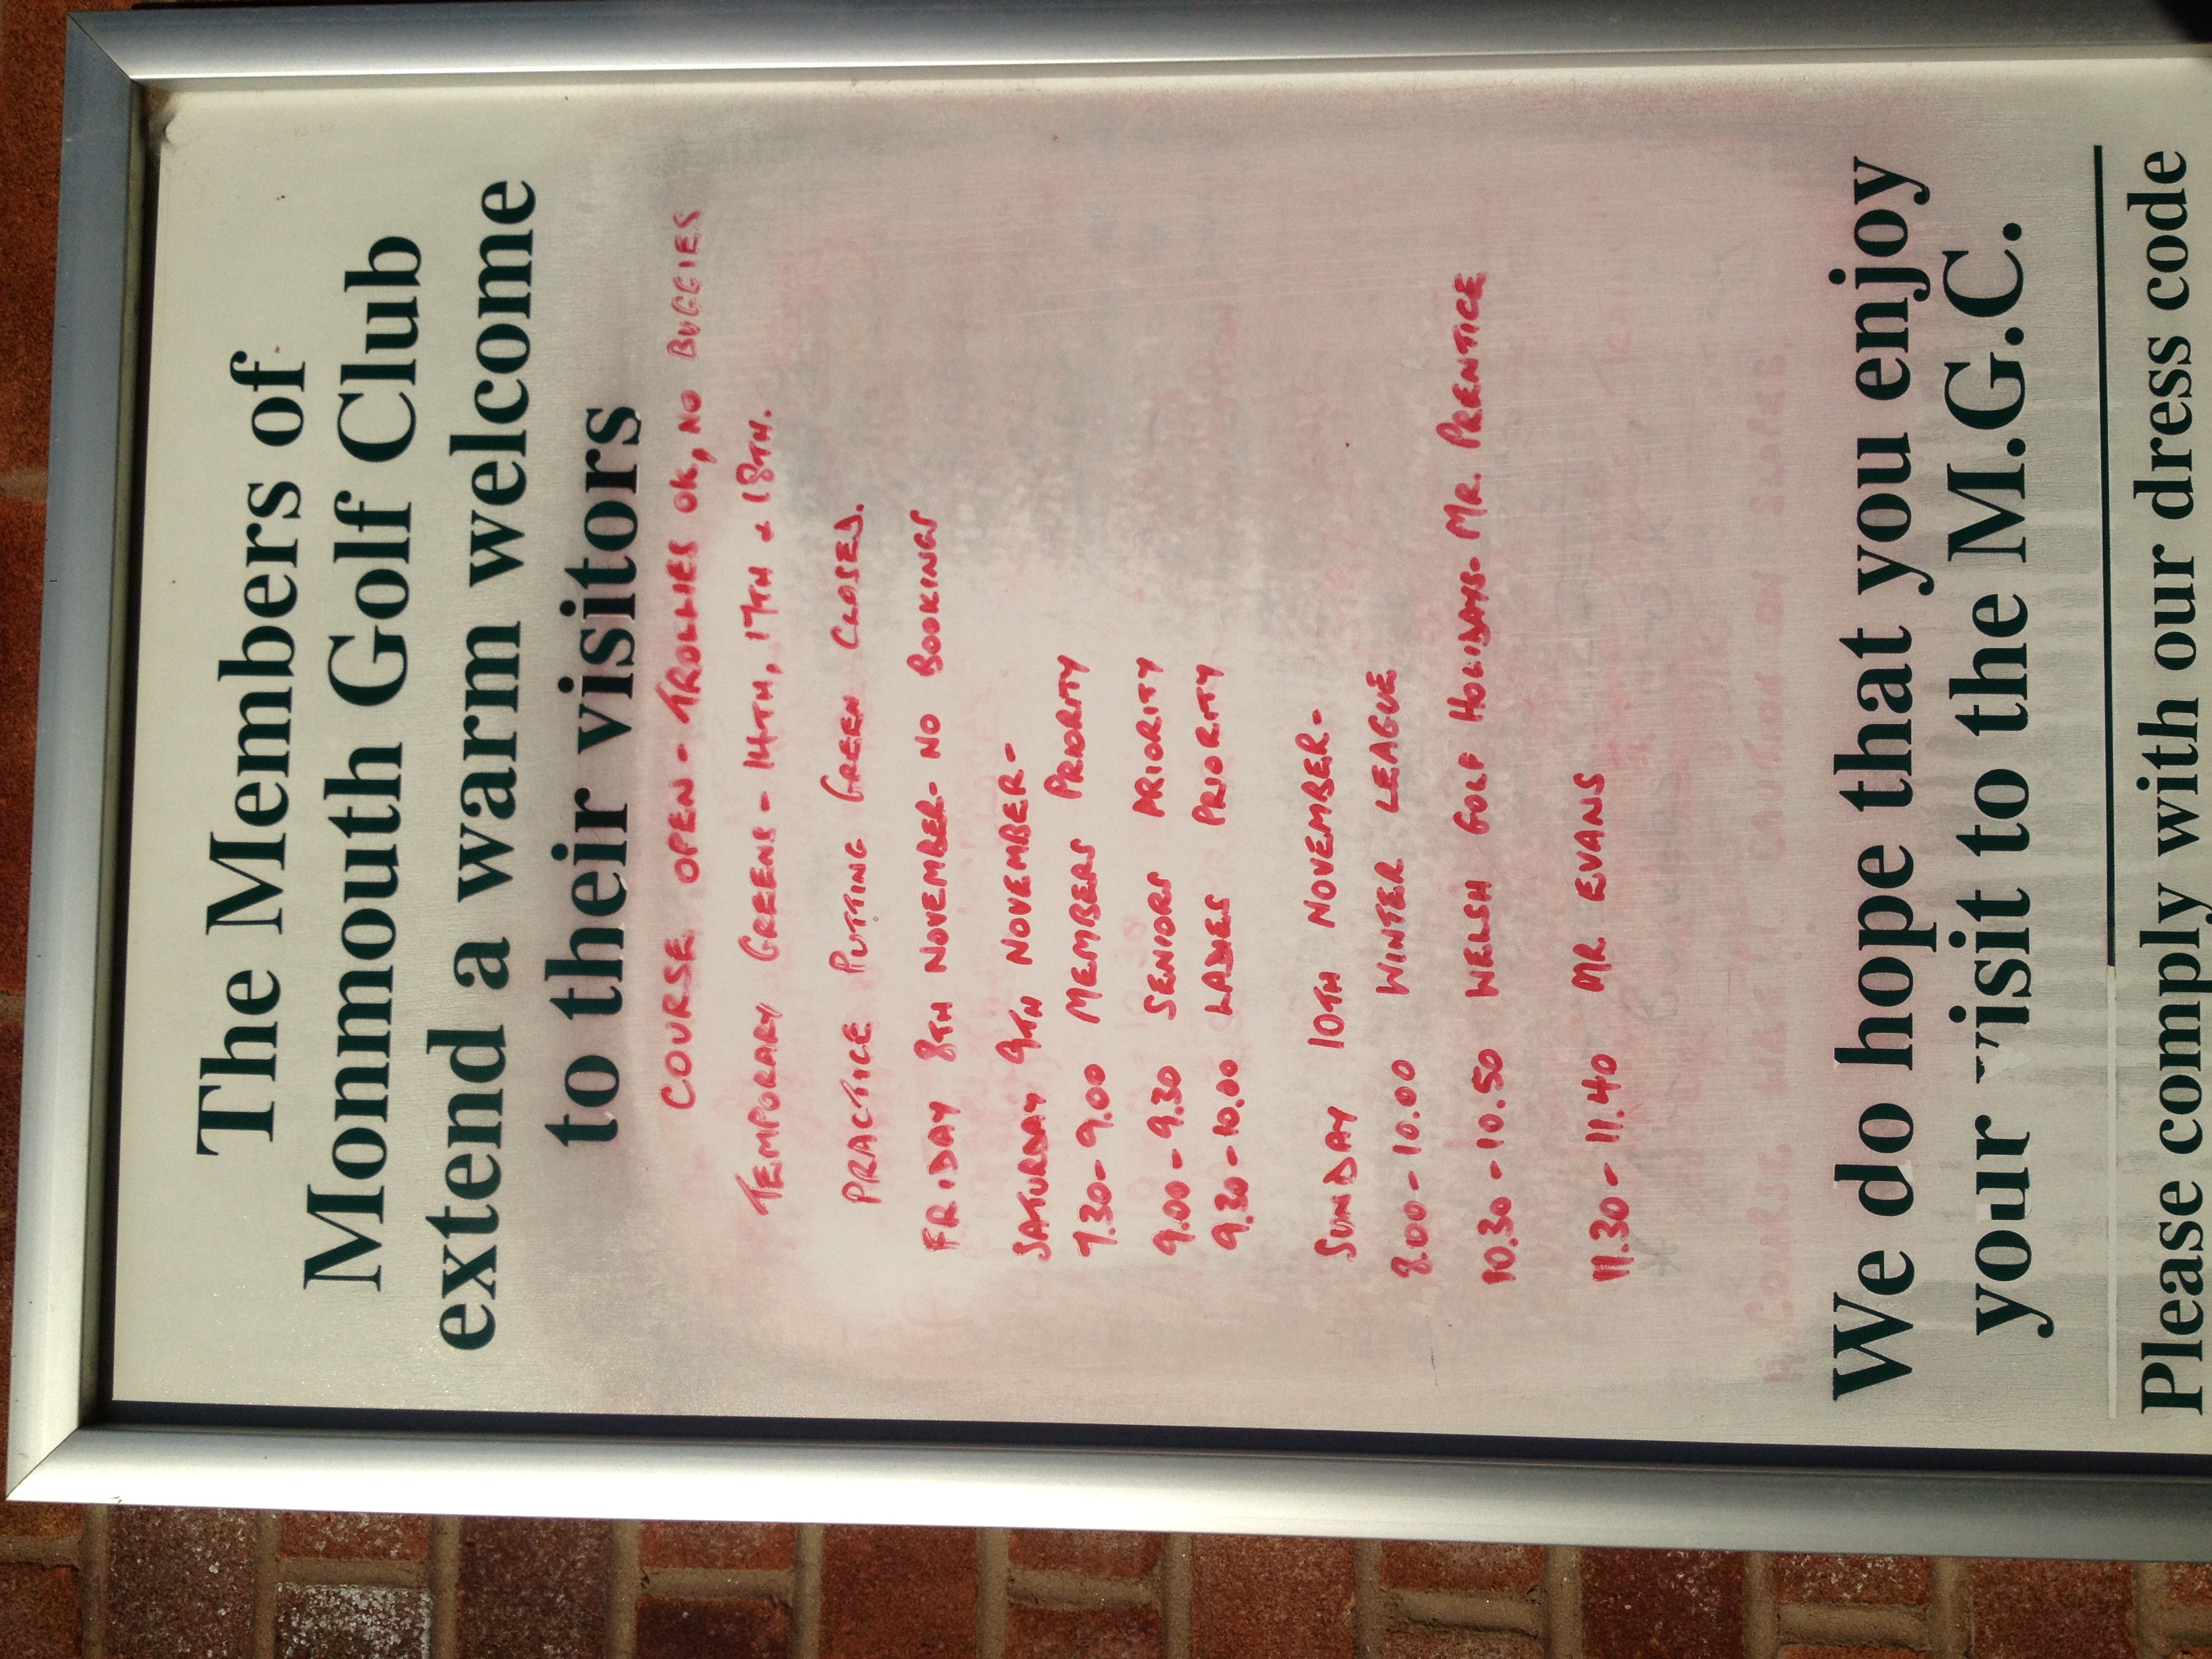 The Members of
Monmouth Golf Club
extend a warm welcome
to their visitors
COURSE OPEN - TROLLIES OK, NO BUGGIES
TEMPORARY GREENS - 14TH, 17TH & 18TH.
PRACTICE PUTTING GREEN CLOSED.
FRIDAY 8TH NOVEMBER - NO BOOKINGS
SATURDAY 9TH NOVEMBER -
7.30 - 9.00 MEMBERS PRIORITY
9.00 - 9.30 SENIORS PRIORITY
9.30 - 10.00 LADIES PRIORITY
SUNDAY 10TH NOVEMBER -
8.00 - 10.00 WINTER LEAGUE
10.30 - 10.50 WELSH GOLF HOLIDAYS - MR. PRENTICE
11.30 - 11.40 MR EVANS
* All Bunkers
COURSE WET !! CAUTION ON SLOPES.
We do hope that you enjoy
your visit to the M.G.C.
Please comply with our dress code